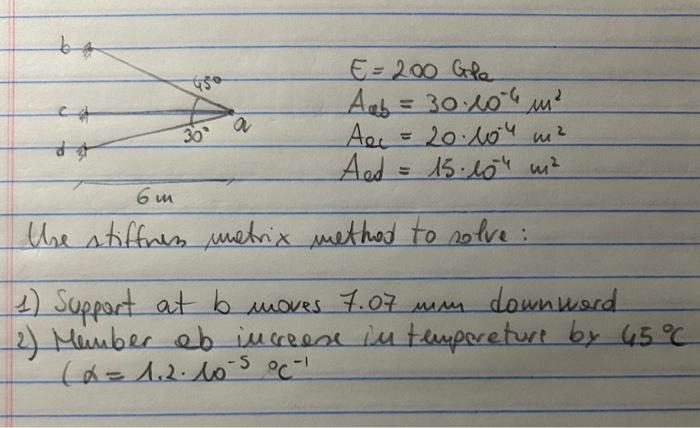 b
45°
c
a
30°
d
6 m
E = 200 GPa
Aab = 30·10⁻⁴ m²
Aac = 20·10⁻⁴ m²
Aad = 15·10⁻⁴ m²
Use stiffness matrix method to solve:
1) Support at b moves 7.07 mm downward
2) Member ab increase in temperature by 45 °C
(α = 1.2·10⁻⁵ °C⁻¹